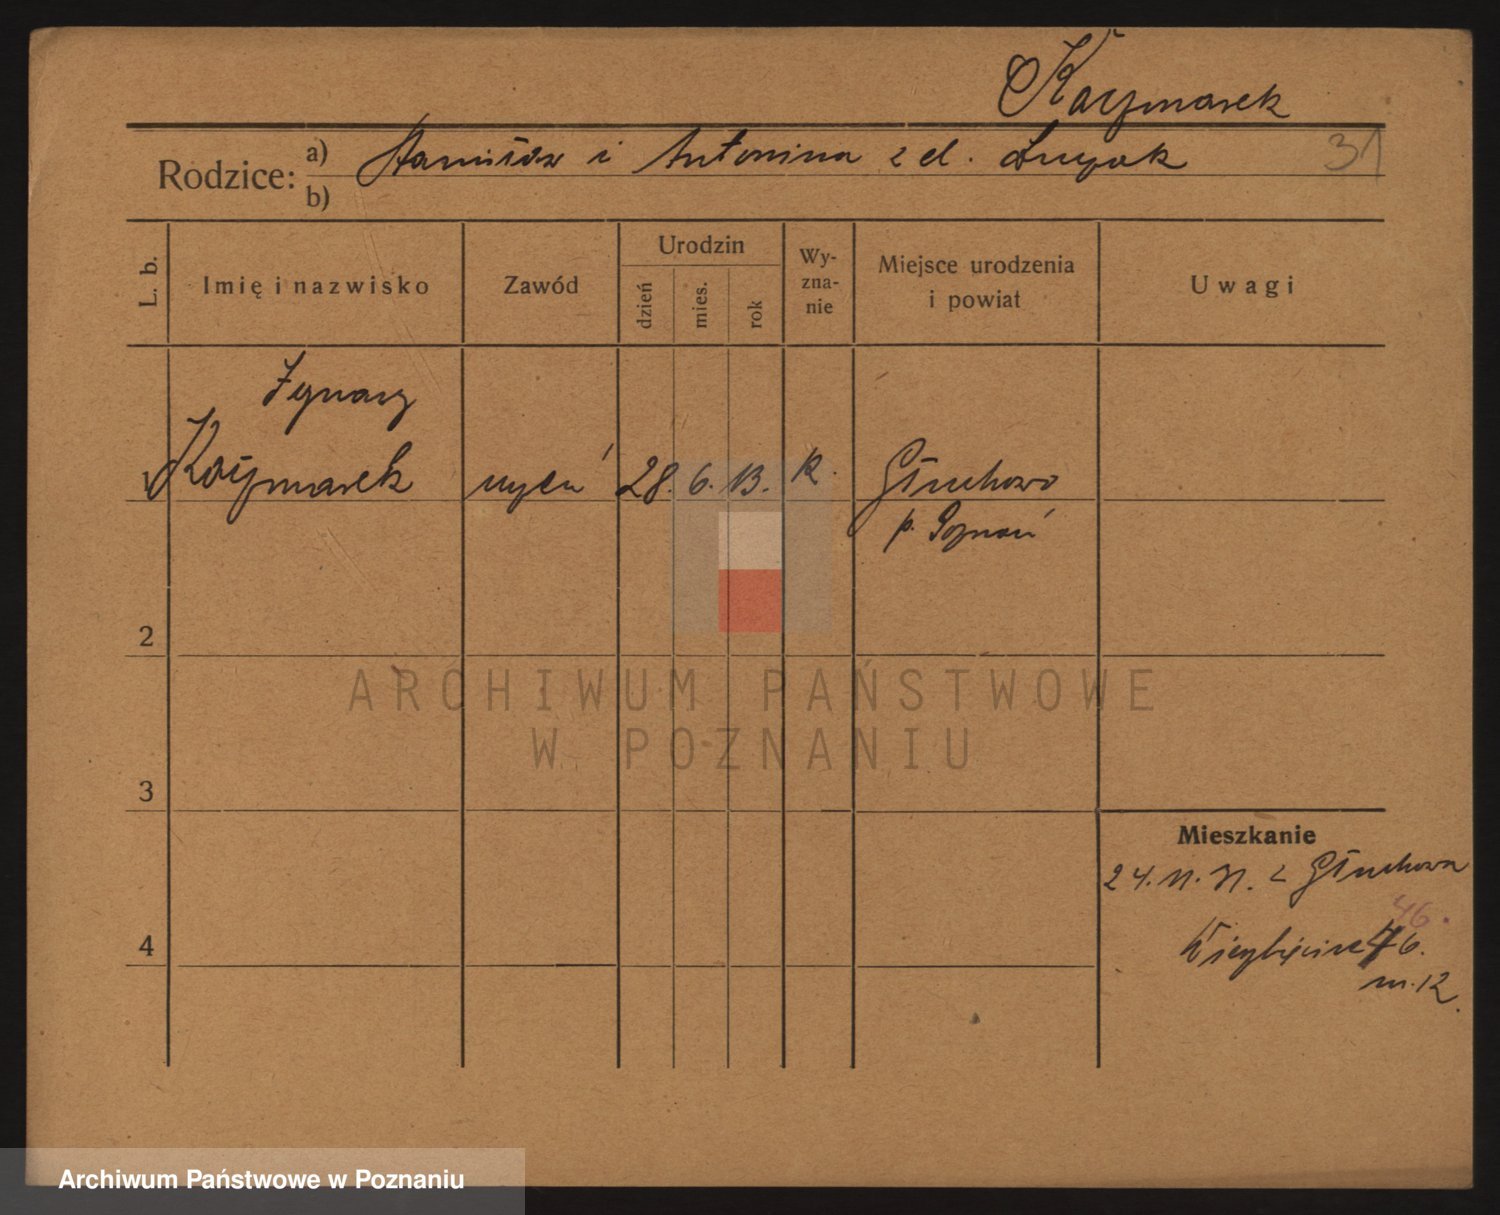 Kaczmarek
Rodzice: a) Stanisław i Antonina z d. 31
b)
L. b. Imię i nazwisko Zawód Urodzin dzień mies. rok Wy-zna-nie Miejsce urodzenia i powiat Uwagi
Ignacy
Kaczmarek uczeń 28. 6. 13. R. Głuchowo
p. Poznań
2
ARCHIWUM PAŃSTWOWE
W POZNANIU
3
Mieszkanie
24. 11. 31. z Głuchowa
46.
4 Wierzbięcice 46.
m. 12.
Archiwum Państwowe w Poznaniu